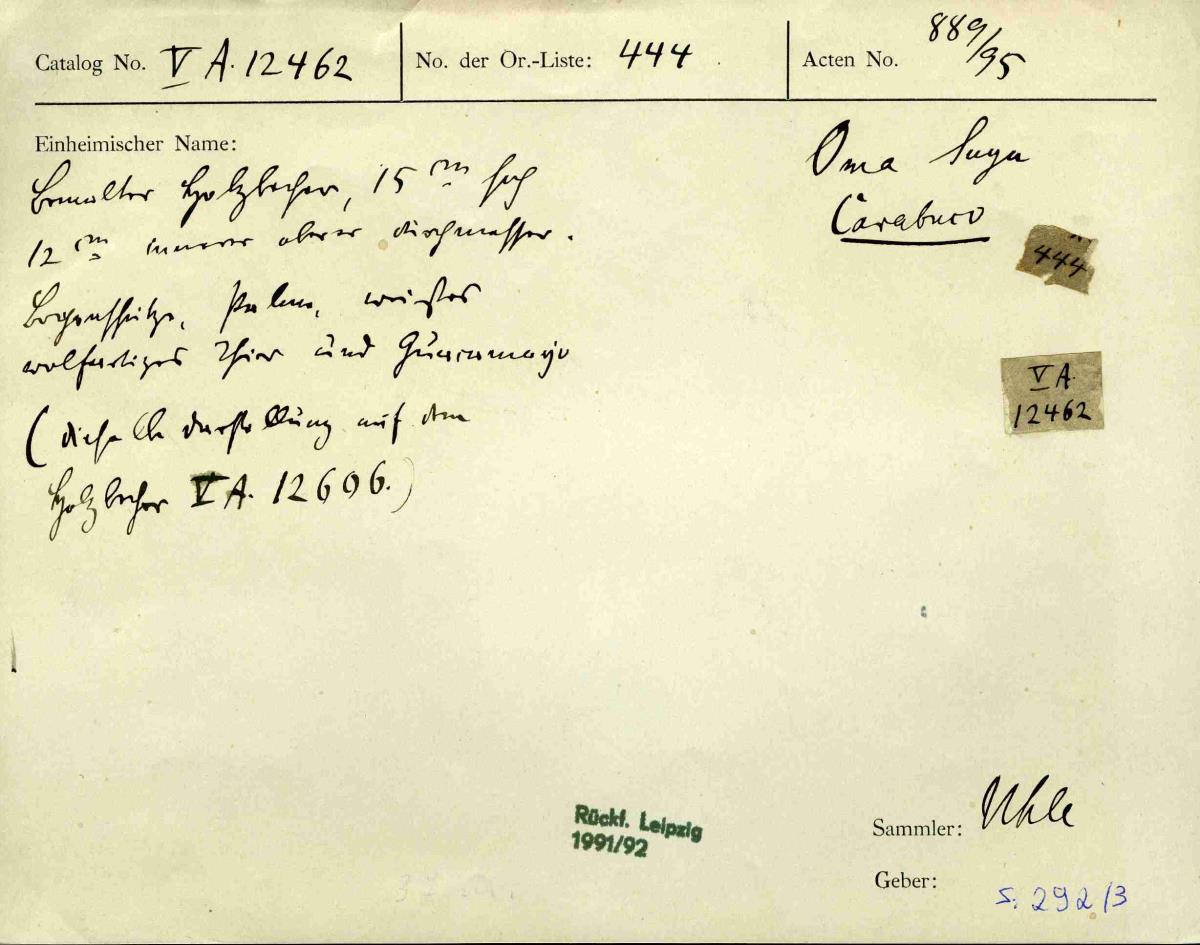 Catalog No. V A. 12462
No. der Or.-Liste: 444
Acten No. 889/95
Einheimischer Name:
Bemalter Holzbecher, 15 cm hoch
12 cm innerer oberer Durchmesser.
Bogenschütze, Palme,
wolfartiges Thier und Guacamayo
(dieselbe Darstellung auf dem
Holzbecher V A. 12606.)
Oma Suyu
Carabuco
444
V A.
12462
Rückf. Leipzig
1991/92
Sammler: Uhle
Geber:
S. 292/3